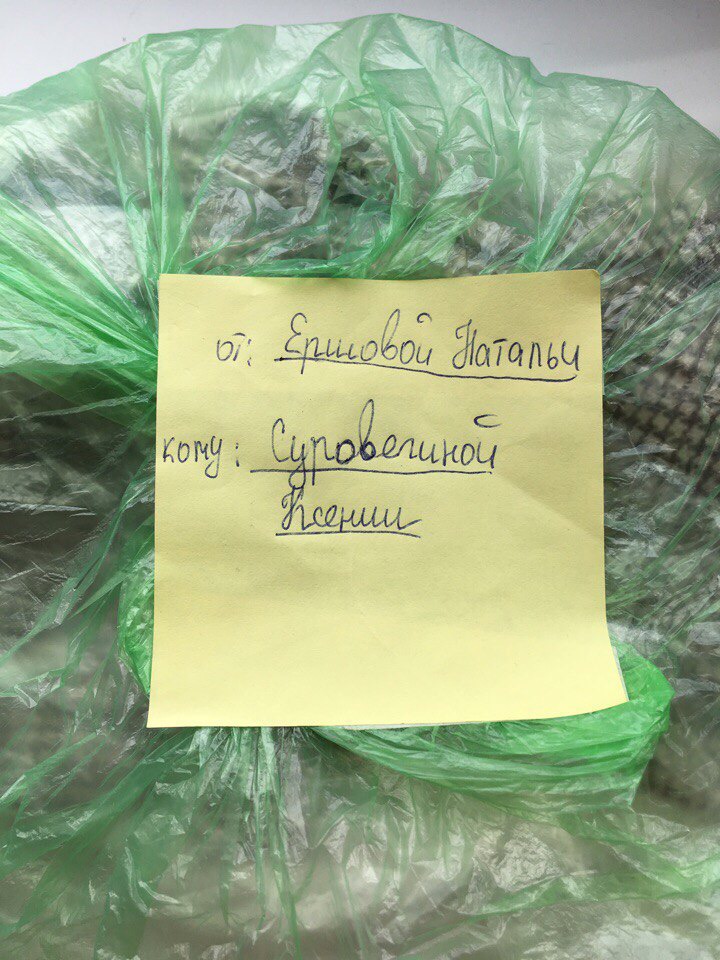 от: Ершовой Натальи
кому: Суровегиной
Ксении